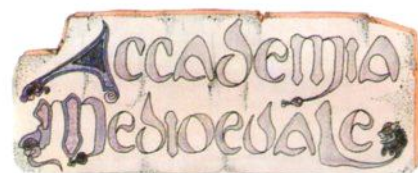 Accademia
Medioevale